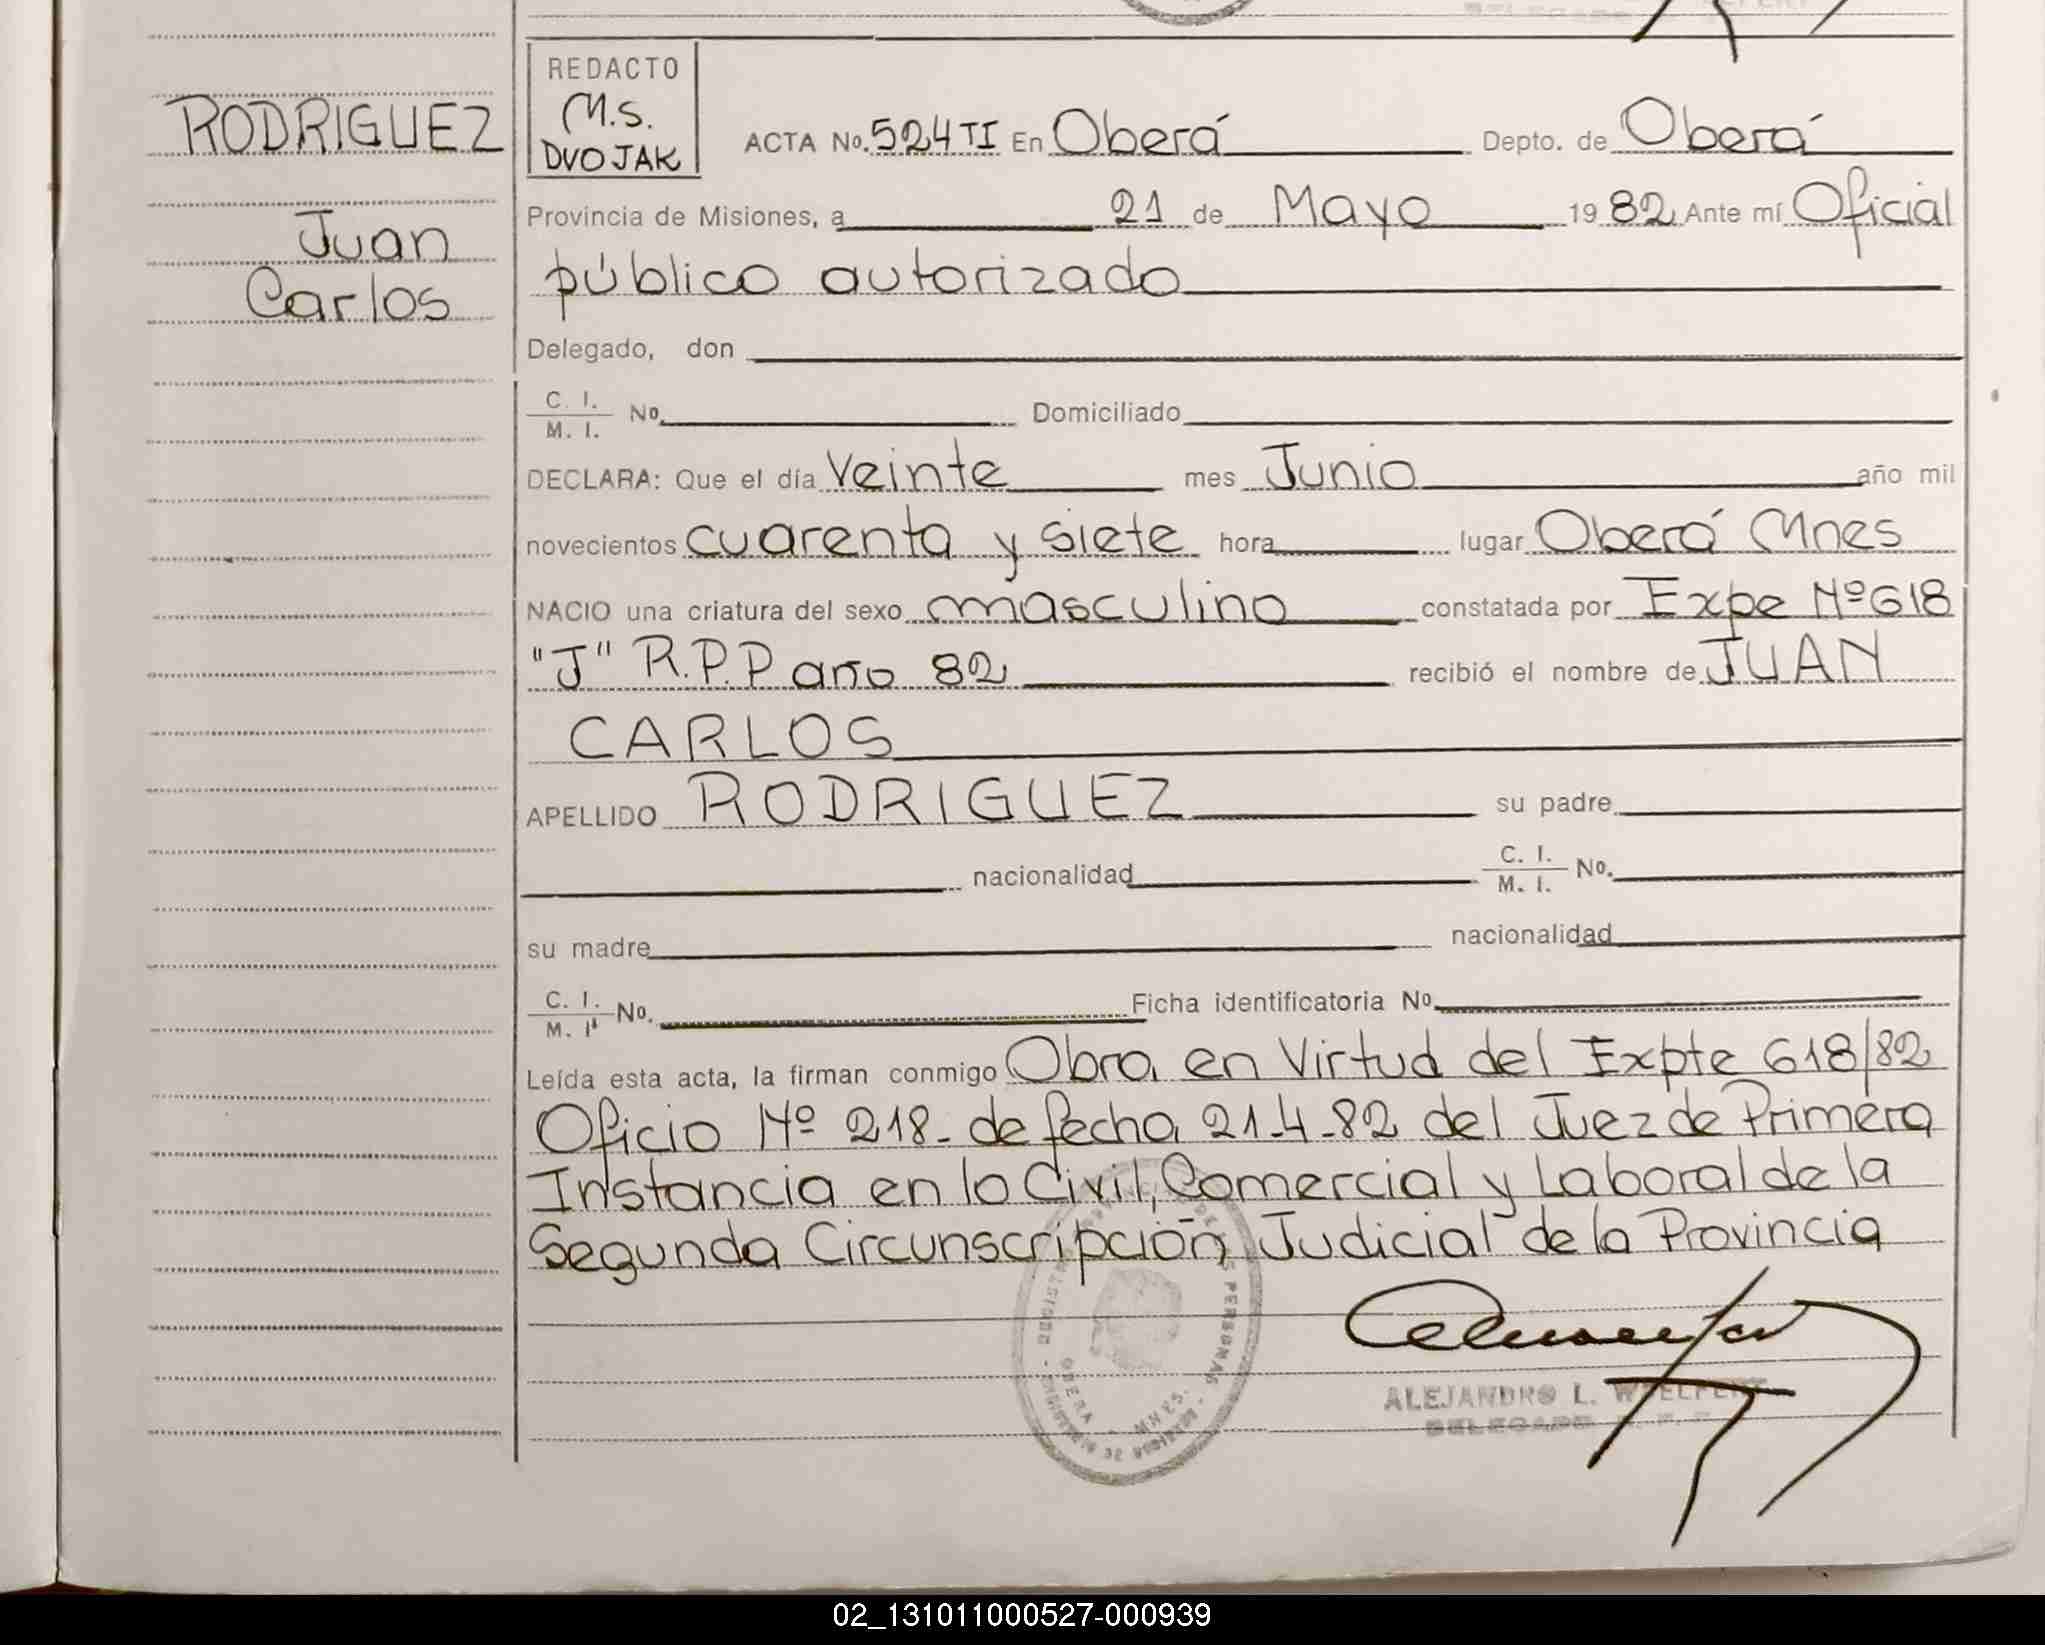 RODRIGUEZ
Juan
Carlos
REDACTO
M.S.
DVOJAK
ACTA No. 524 TI En Oberá Depto. de Oberá
Provincia de Misiones, a 21 de Mayo 1982 Ante mí Oficial
público autorizado
Delegado, don
C. I.
M. I. No. Domiciliado
DECLARA: Que el día Veinte mes Junio año mil
novecientos cuarenta y siete hora lugar Oberá Mnes
NACIO una criatura del sexo masculino constatada por Expe Nº 618
"J" R.P.P año 82 recibió el nombre de JUAN
CARLOS
APELLIDO RODRIGUEZ su padre
nacionalidad C. I.
M. I. No.
su madre nacionalidad
C. I.
M. I. No. Ficha identificatoria No
Leída esta acta, la firman conmigo Obra en Virtud del Expte 618/82
Oficio Nº 218- de fecha 21-4-82 del Juez de Primera
Instancia en lo Civil, Comercial y Laboral de la
Segunda Circunscripción Judicial de la Provincia
PERSONAS
OBERA - MNES.
ALEJANDRO L.
DELEGADO
02_131011000527-000939